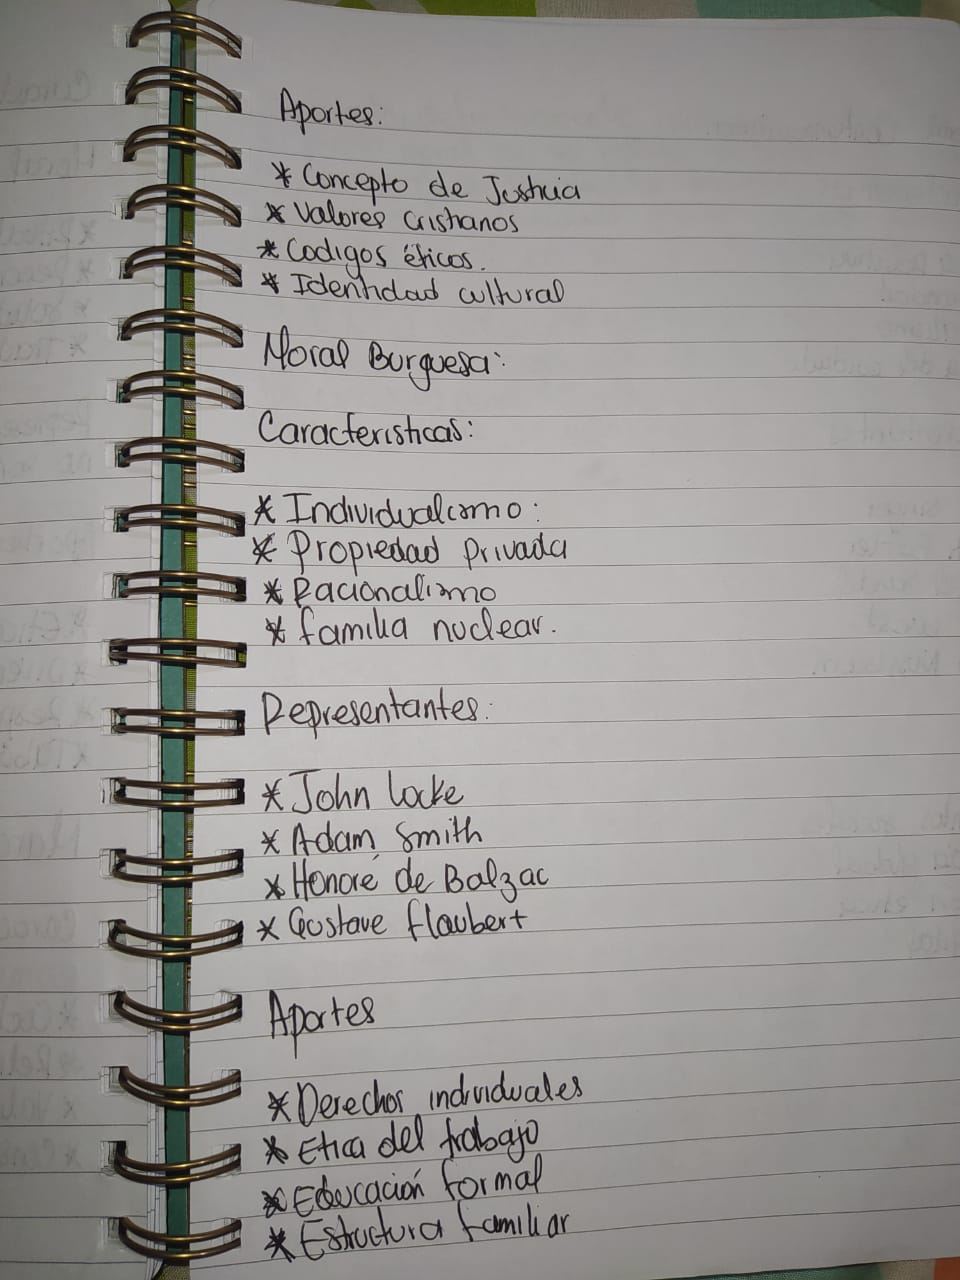 Aportes:
* Concepto de Justicia
* Valores Cristianos
* Codigos éticos.
* Identidad cultural
Moral Burguesa:
Características:
* Individualismo:
* Propiedad Privada
* Racionalismo
* familia nuclear.
Representantes:
* John Locke
* Adam Smith
* Honoré de Balzac
* Gustave flaubert
Aportes
* Derechos individuales
* Etica del trabajo
* Educación formal
* Estructura familiar